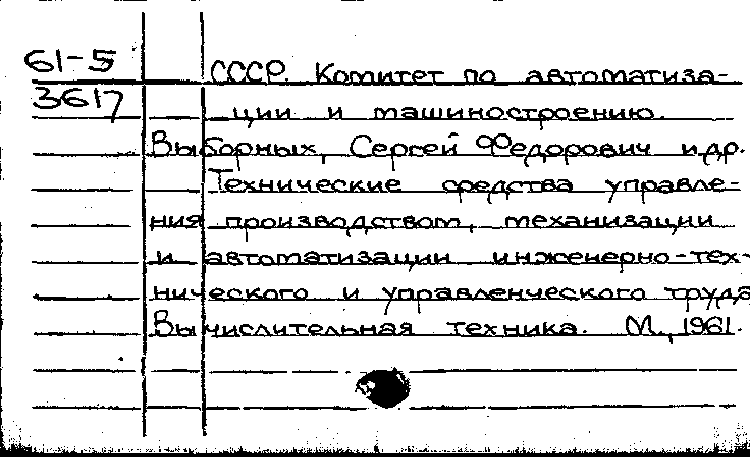 61-5 СССР. Комитет по автоматиза-
3617 ции и машиностроению.
Выборных, Сергей Федорович и др.
Технические средства управле-
ния производством, механизации
и автоматизации инженерно-тех-
нического и управленческого труда
Вычислительная техника. М., 1961.